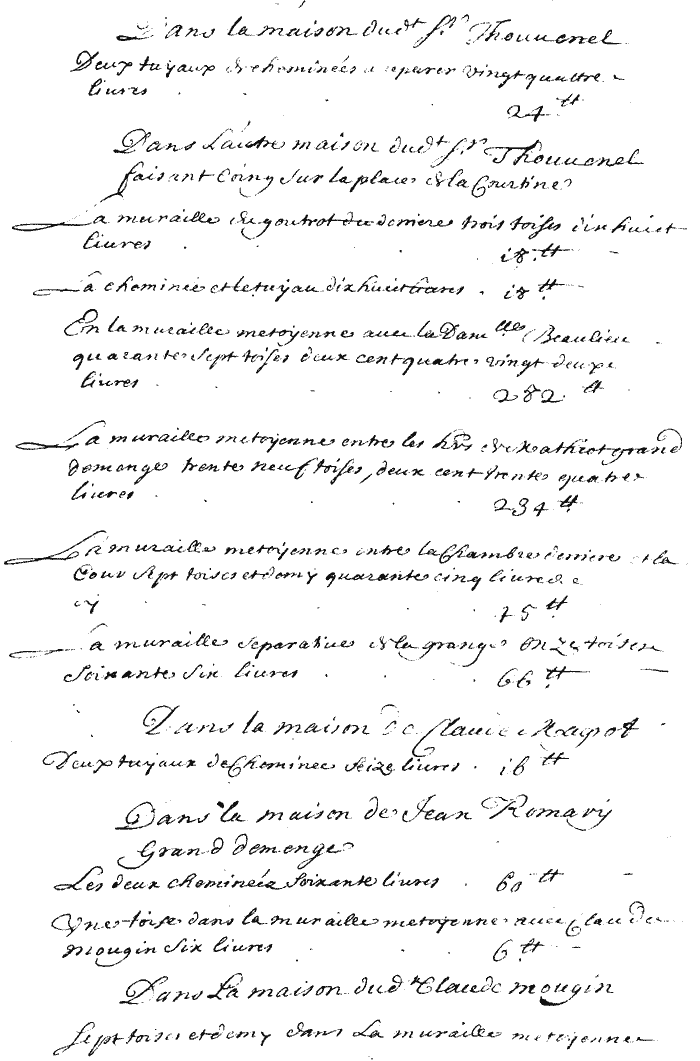 Dans la maison dud.t S.r Thouuenel
Deux tuyaux de cheminées a reparer vingt quattre
liures
24 tt
Dans L'autre maison dud.t S.r Thouuenel
faisant Coing sur la place de la Courtine
La muraille du goutrot du derriere trois toises dix huict
liures
18 tt
La cheminée et le tuyau dix huict liures 18 tt
En la muraille metoyenne auec la Dam.lle Beaulieu
quarante sept toises deux cent quatre vingt deuxe
liures
282 tt
La muraille metoyenne entre les hrs de Mathiot grand
demenge trente neuf toises, deux cent trente quatre
liures
234 tt
La muraille metoyenne entre la Chambre derriere et la
Cour sept toises et demy quarante cinq liures
cy
75 tt
La muraille separatiue de la grange onze toises
Soixante six liures
66 tt
Dans la maison de Claude Magrot
Deux tuyaux de Cheminée seize liures 16 tt
Dans la maison de Jean Romary
Grand demenge
Les deux cheminéez soixante liures 60 tt
Vne toise dans la muraille metoyenne auec Claude
mougin six liures
6 tt
Dans La maison dud. Claude mougin
Sept toises et demy dans La muraille metoyenne